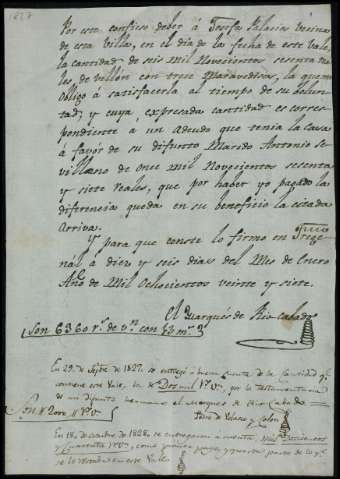 1827
Por esta confieso deber á Josefa Palacios vecina
de esta villa, en el dia de la fecha de este Vale,
la cantidad de seis mil Novecientos sesenta rea-
les, de vellon con trece Maravedises, la que me
Obligo á satisfacerla al tiempo de su volun-
tad; y cuya expresada cantidad es corres-
pondiente á un adeudo que tenia la Casa
á favor de su difunto Marido Antonio Se-
villano de Once mil Novecientos sesenta
y siete reales, que por haber yo pagado la
diferiencia queda en su beneficio la citada
Arriva.
Y para que conste lo firmo en Frege-
nál á diez y seis dias del Mes de Enero
Año de Mil Ochocientos veinte y siete.
El Marqués de Rio cabado
Son 6960 rs. de vn. con 13 ms.
En 29. de Sepbre de 1827. se entregó á buena cuenta de la Cantidad qe.
contiene este Vale, la de Dos mil rs. vn. por la testamentaria
de mi difunto hermano el Marques de Rio Cabado
Pedro de Velasco y Colon
Son # 2000 # rs. vn.
En 18. de 1828. se entregaron á cuenta, mil
y Cuarenta rs. vn.